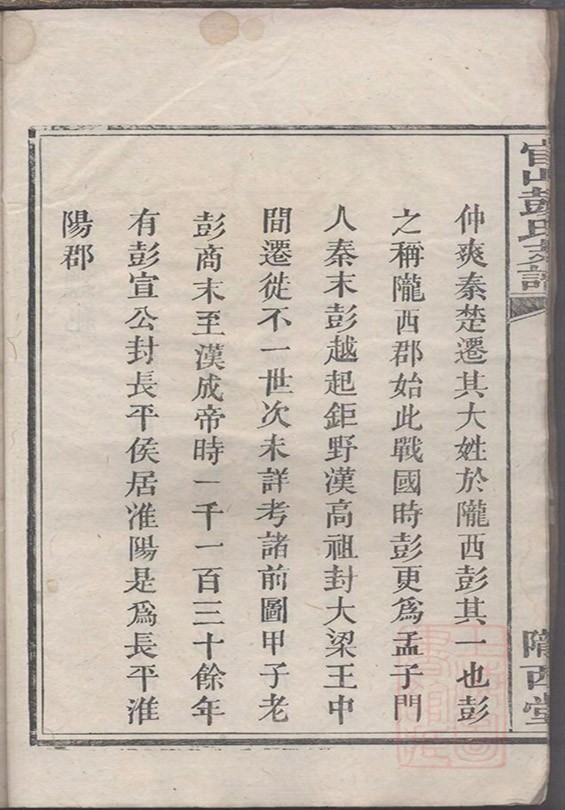 官山彭氏宗譜
隴西堂
仲爽秦楚遷其大姓於隴西彭其一也彭
之稱隴西郡始此戰國時彭更為孟子門
人秦末彭越起鉅野漢高祖封大梁王中
間遷徙不一世次未詳考諸前圖甲子老
彭商末至漢成帝時一千一百三十餘年
有彭宣公封長平侯居淮陽是為長平淮
陽郡